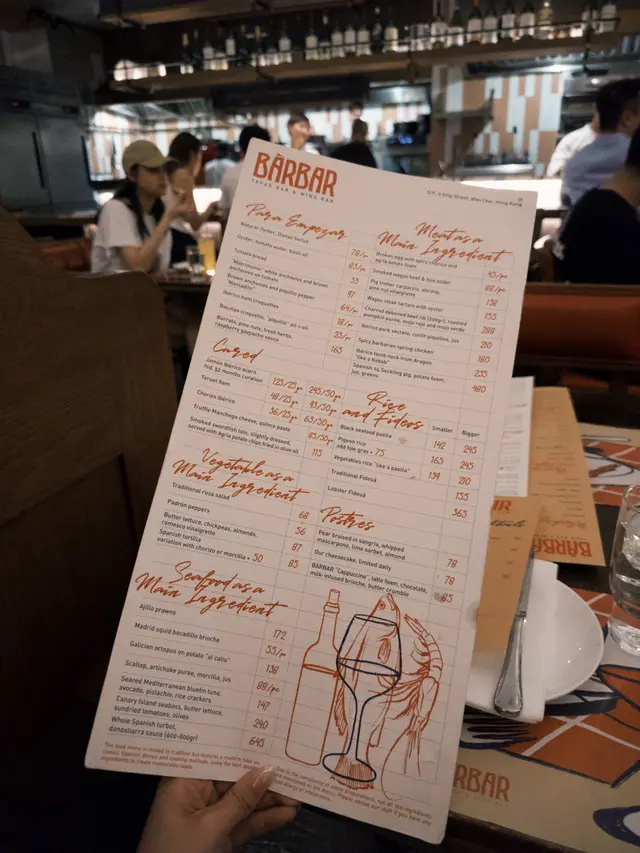 BÀRBAR
TAPAS BAR & WINE BAR
Wan Chai, Hong Kong
Para Empezar
Natural Oyster, Daniel Sorlut
Oyster, tomato water, basil oil 78/pc
Tomato bread 83/pc
"Matrimonio" white anchovies and brown 55
anchovies on tomato 97
Brown anchovies and piquillo pepper
"Montadito" 64/pc
Ibérico ham croquettes 18/pc
Bacalao croquette, "piquillo" ali-i-oli 23/pc
Burrata, pine nuts, fresh herbs, 165
raspberry gazpacho sauce
Cured
Jamón Ibérico acorn
fed, 32 months curation 125/25gr 245/50gr
Teruel Ham 48/25gr 93/50gr
Chorizo Ibérico 36/25gr 63/50gr
Truffle Manchego cheese, quince paste 85/50gr
Smoked swordfish loin, slightly dressed, 115
served with Agria potato chips fried in olive oil
Vegetable as a
Main Ingredient
Traditional rusa salad 68
Padrón peppers 56
Butter lettuce, chickpeas, almonds, 87
romesco vinaigrette
Spanish tortilla 85
variation with chorizo or morcilla + 50
Seafood as a
Main Ingredient
Ajillo prawns 172
Madrid squid bocadillo brioche 55/pc
Galician octopus on potato "al caliu" 138
Scallop, artichoke purée, morcilla, jus 88/pc
Seared Mediterranean bluefin tuna, 147
avocado, pistachio, rice crackers
Canary Island seabass, butter lettuce, 240
sundried tomatoes, olives
Whole Spanish turbot, 645
donostiarra sauce (600-800gr)
Meat as a
Main Ingredient
Broken egg with spicy chorizo and
agria potato foam 45/pc
Smoked wagyu beef & foie slider 88/pc
Pig trotter carpaccio, shrimp, 138
pine nut vinaigrette
Wagyu steak tartare with oyster 155
Charred deboned beef rib (200gr), roasted 288
pumpkin purée, mojo rojo and mojo verde
Ibérico pork secreto, confit piquillos, jus 210
Spicy barbarian spring chicken 180
Ibérico lamb neck from Aragon 235
"like a Kebab"
Spanish ¼ Suckling pig, potato foam, 480
jus, greens
Rice
and Fideos Smaller Bigger
Black seafood paella 142 245
Pigeon rice 165 245
add foie gras + 75
Vegetables rice "like a paella" 134 210
Traditional Fideuà 155
Lobster Fideuà 365
Postres
Pear bruised in sangria, whipped 78
mascarpone, lime sorbet, almond
Our cheesecake, limited daily 78
BÀRBAR "Cappuccino", latte foam, chocolate, 85
milk-infused brioche, butter crumble
BÀRBAR
BÀRBAR